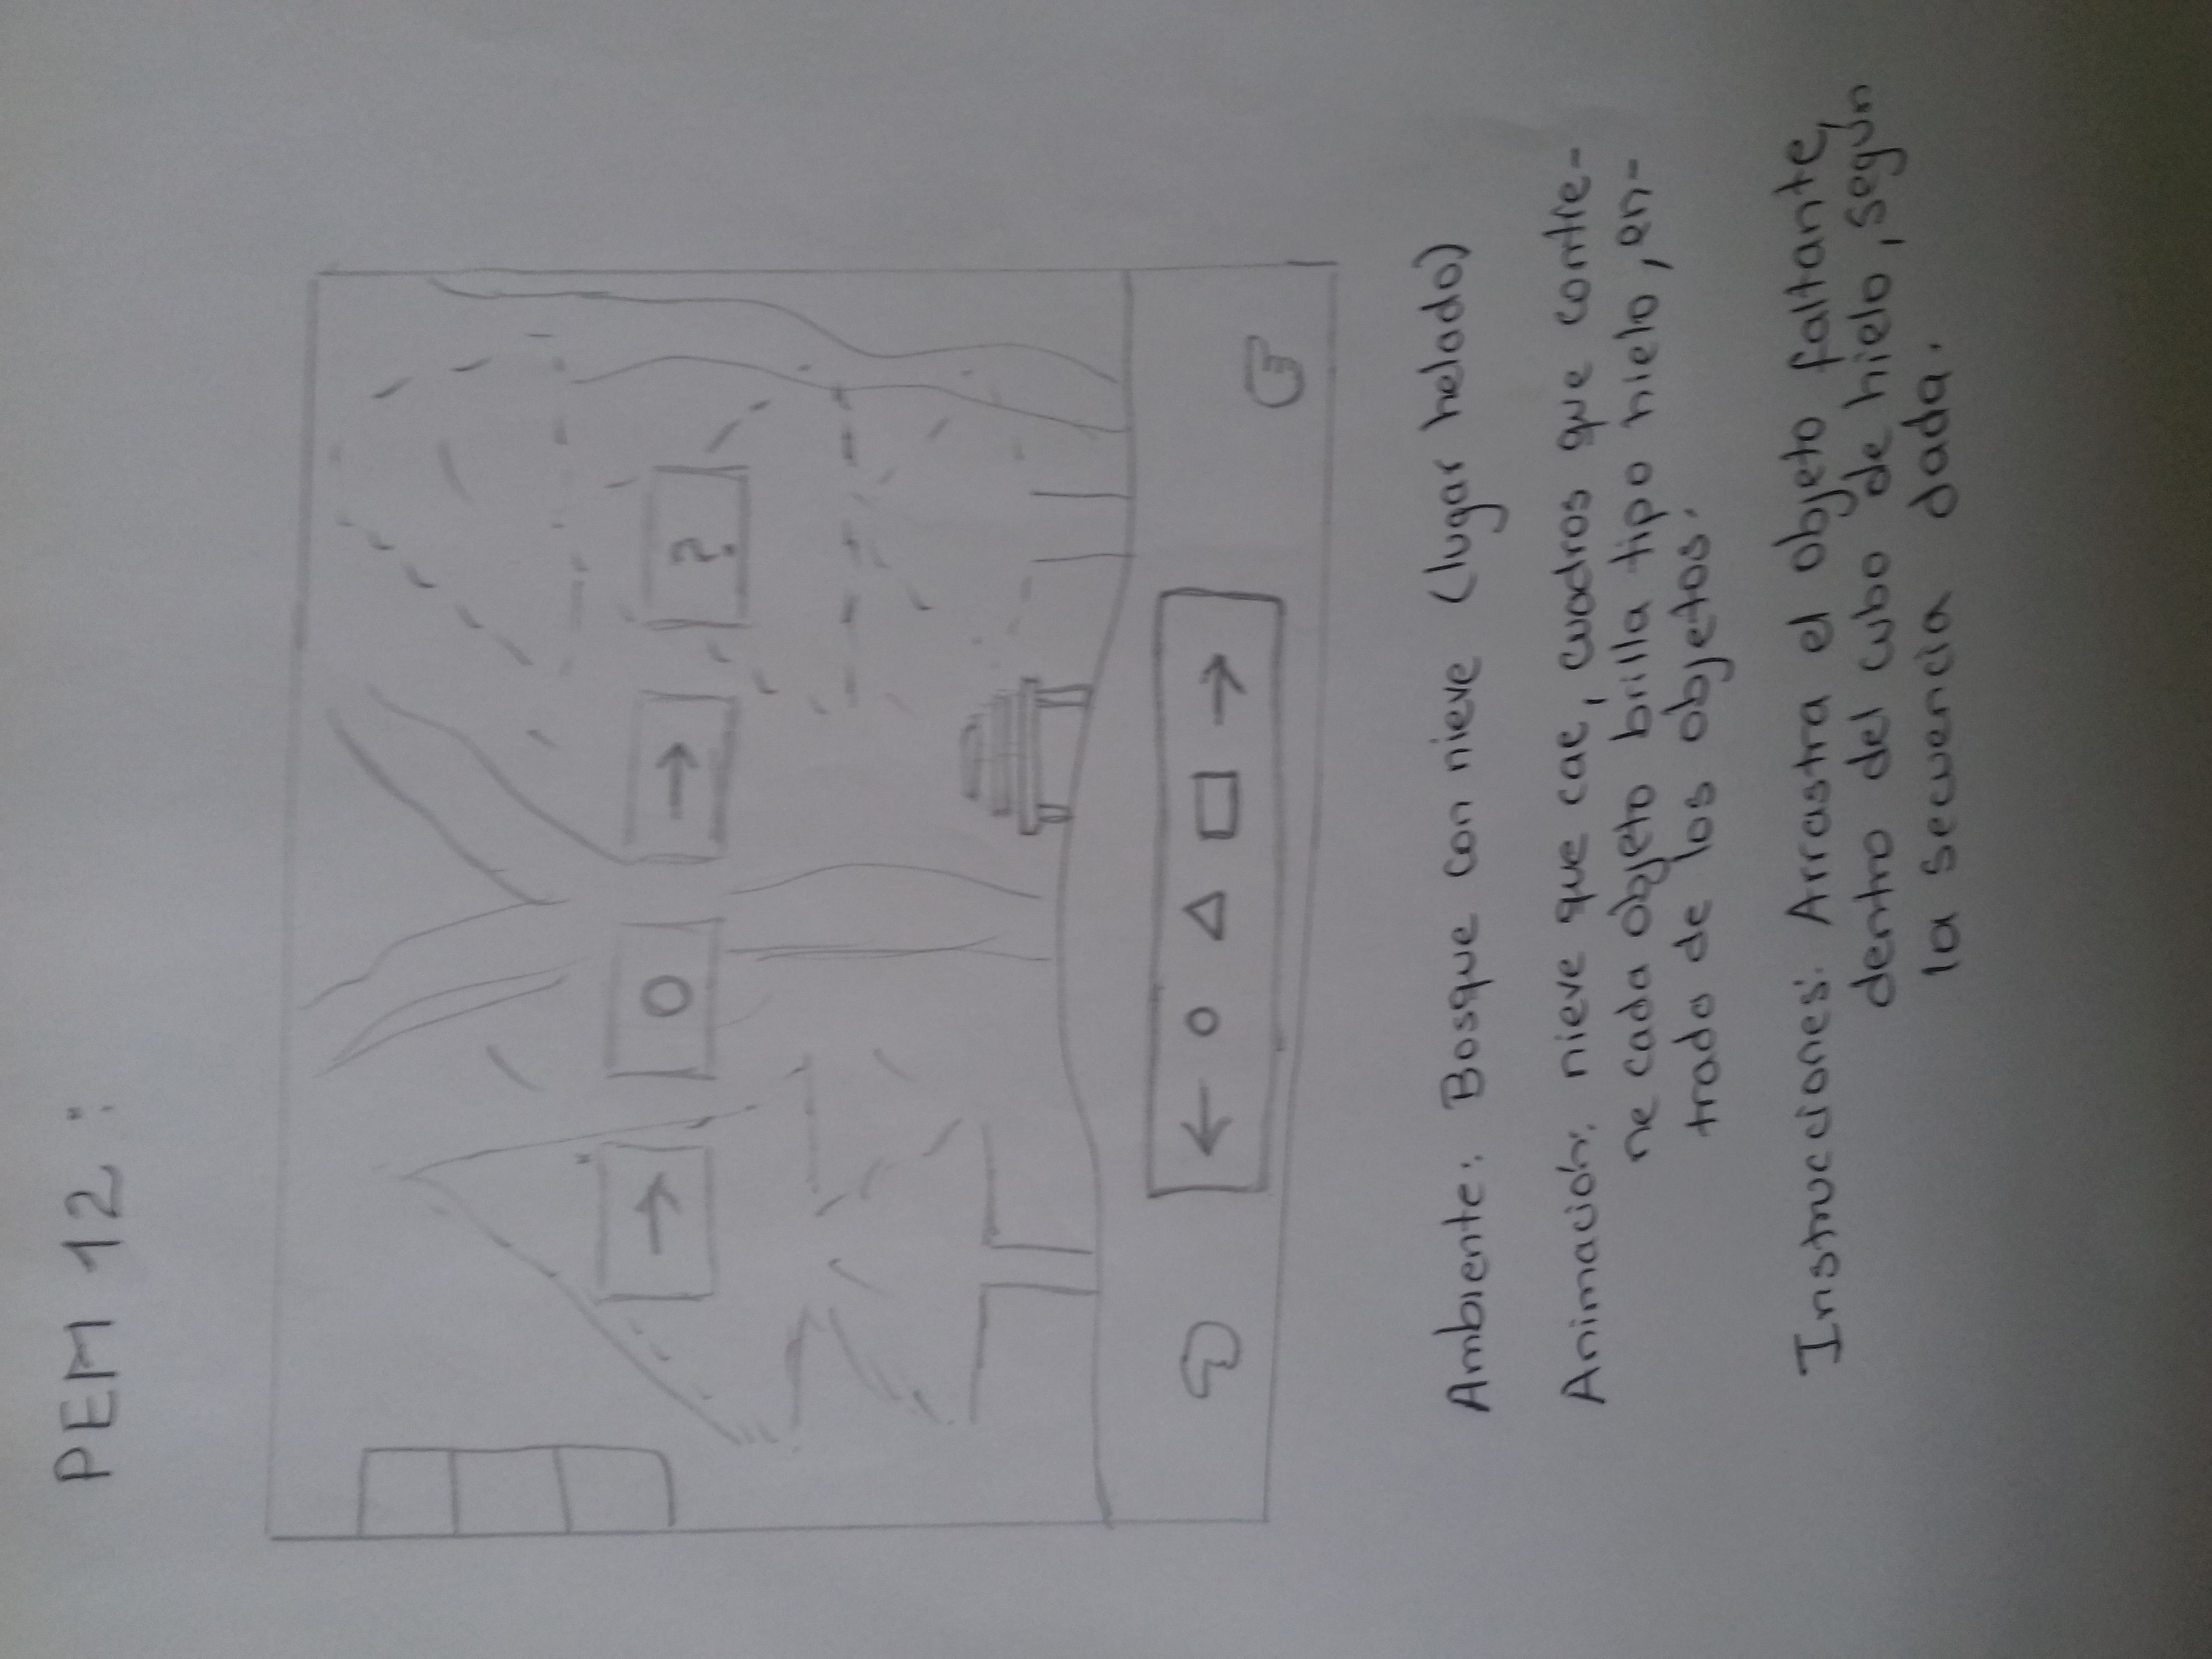 PEM 12 :
?
Ambiente: Bosque con nieve (lugar helado)
Animación: nieve que cae, cuadros que contie-
ne cada objeto brilla tipo hielo, en-
trada de los objetos.
Instrucciones: Arrastra el objeto faltante,
dentro del cubo de hielo, según
la secuencia dada.